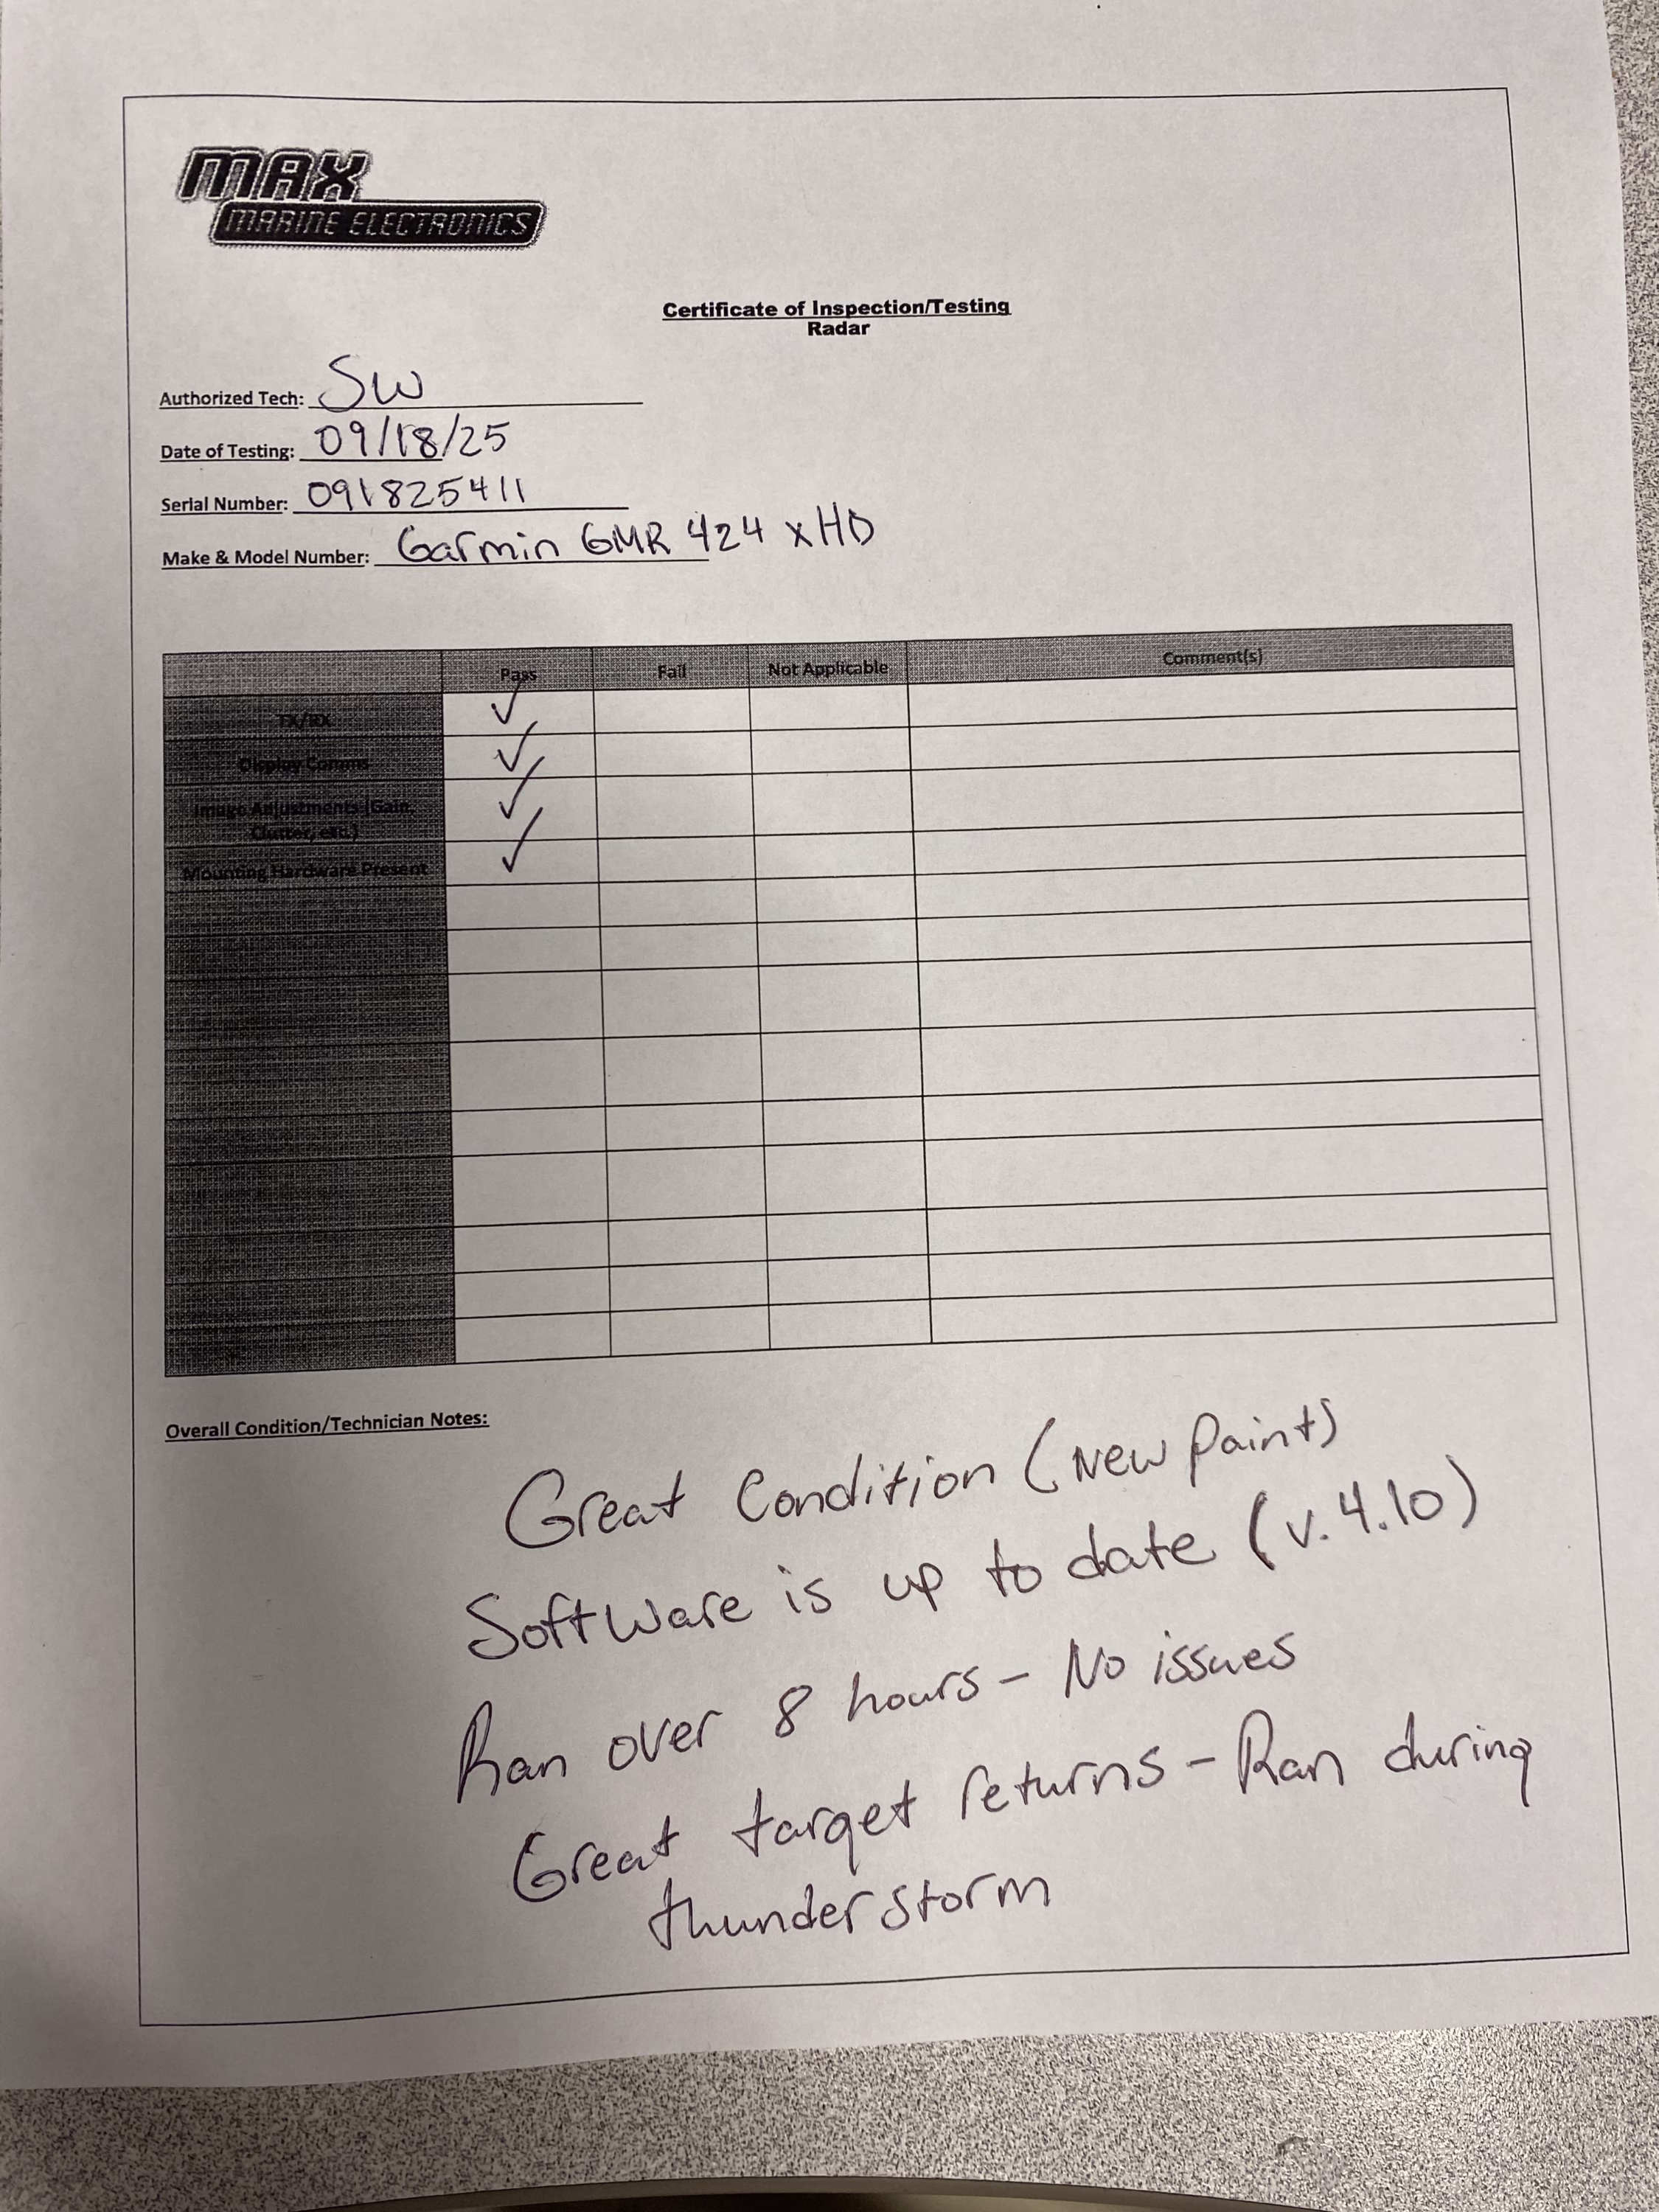 MAX
MARINE ELECTRONICS
Certificate of Inspection/Testing
Radar
Authorized Tech: SW
Date of Testing: 09/18/25
Serial Number: 091825411
Make & Model Number: Garmin GMR 424 xHD
Pass Fail Not Applicable Comment(s)
TX/RX ✓
Display Comms ✓
Image Adjustments (Gain, ✓
Clutter, etc.)
Mounting Hardware Present ✓
Overall Condition/Technician Notes:
Great Condition (New Paint)
Software is up to date (v.4.10)
Ran over 8 hours - No issues
Great target returns - Ran during
thunderstorm